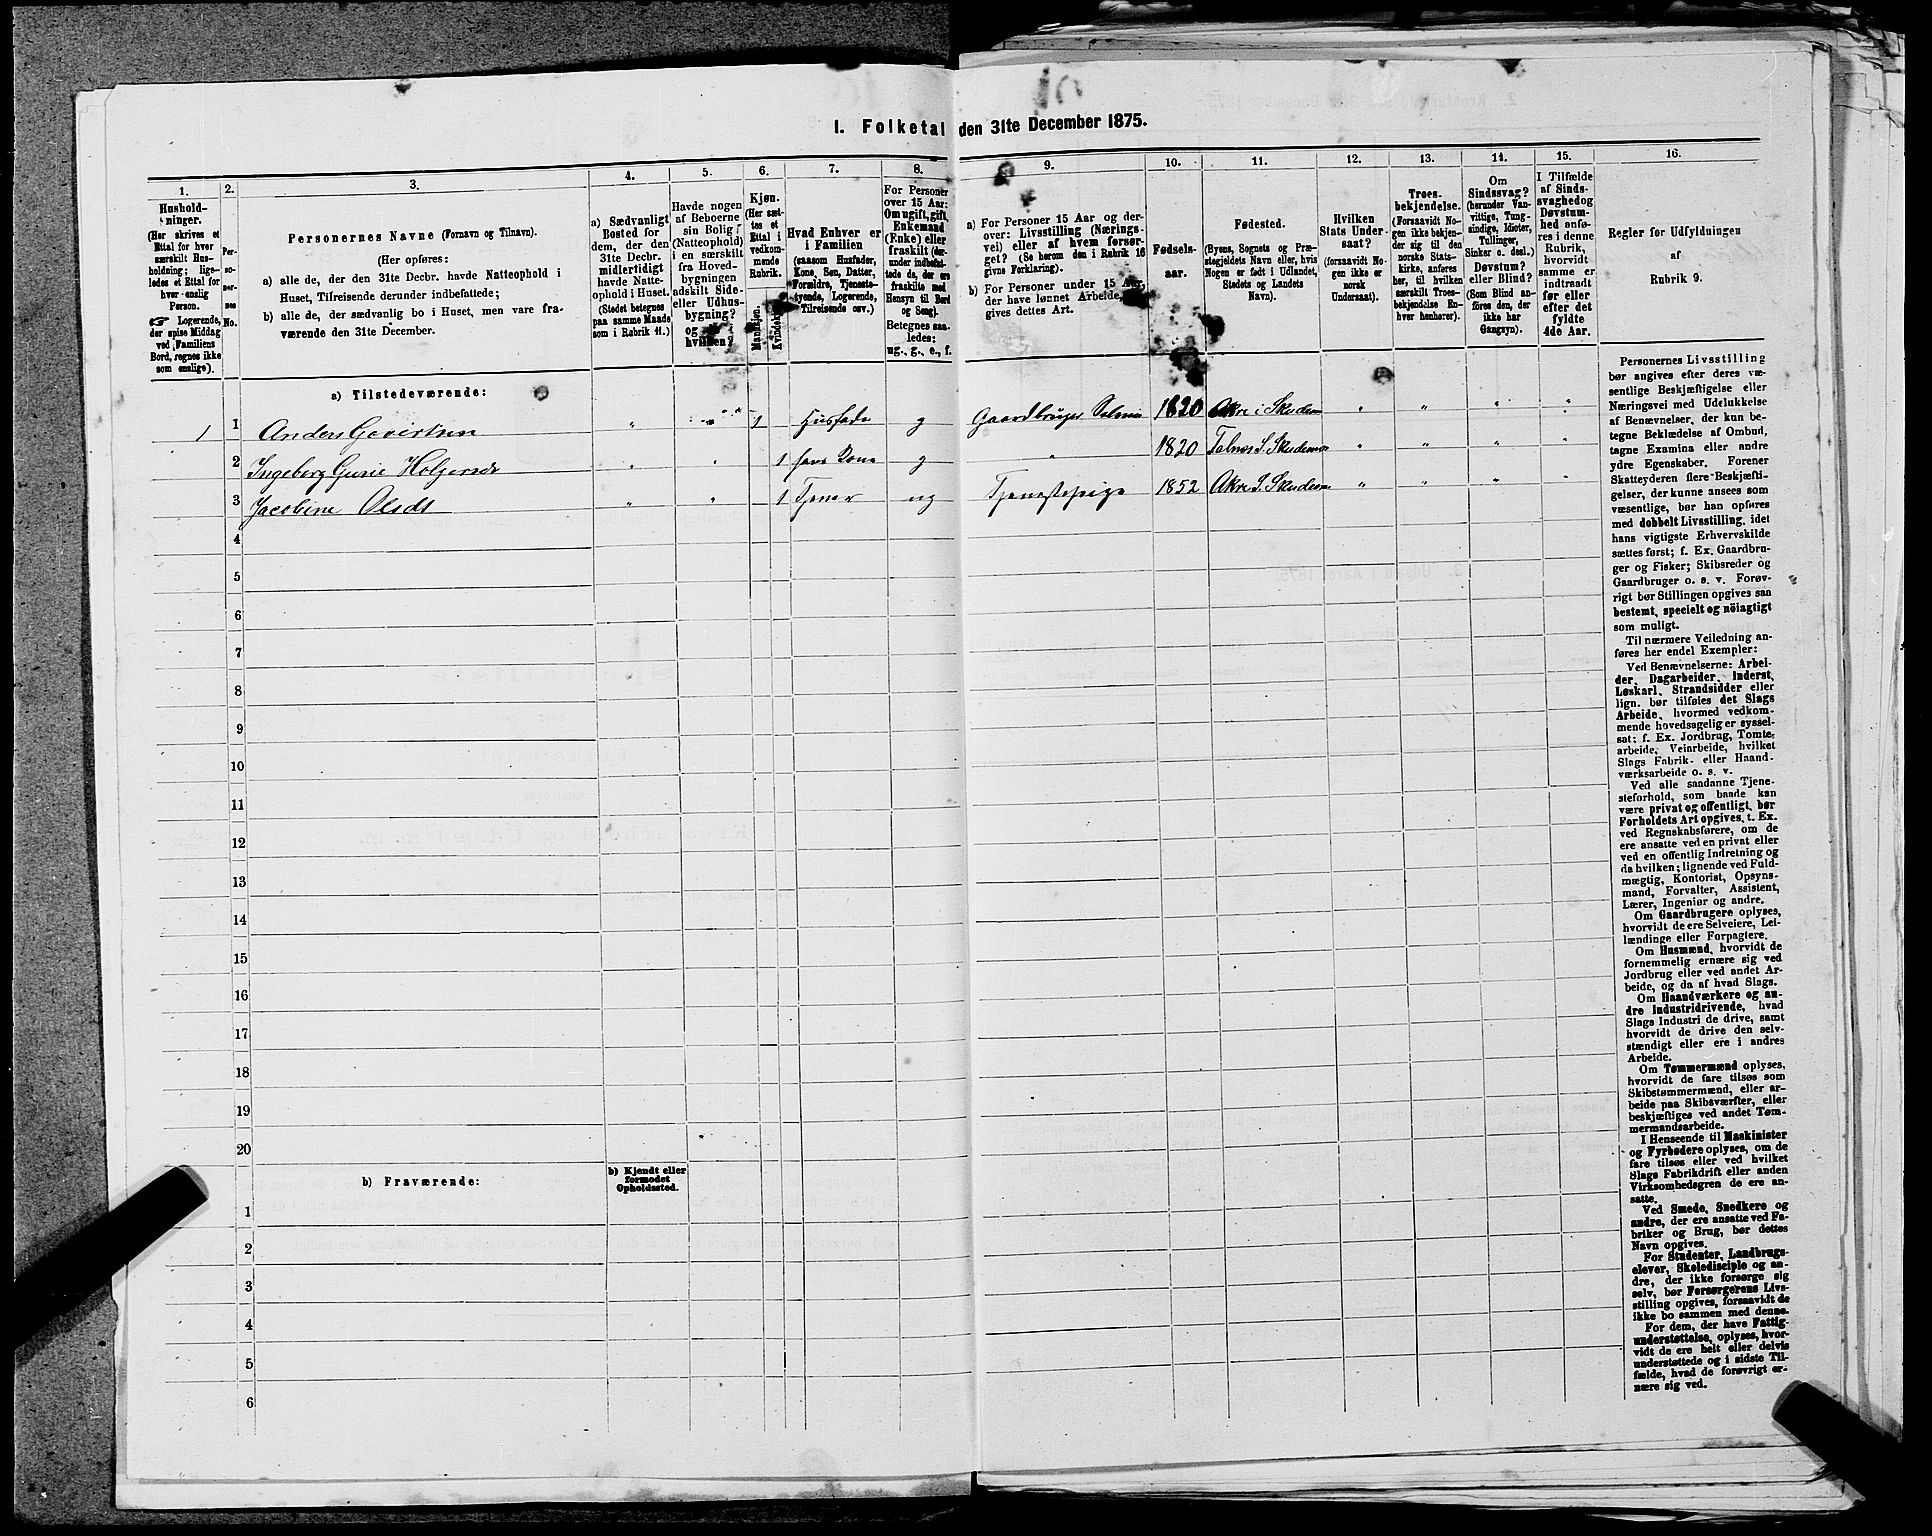 1. Folketal den 31te December 1875.
1.
2.
3.
4.
5.
6.
7.
8.
9.
10.
11.
12.
13.
14.
15.
16.
Hushold-
ninger.
(Her skrives et
Ettal for hver
særskilt Hus-
holdning; lige-
ledes et Ettal for
hver enslig
Person.
☞ Logerende,
der spise Middag
ved Familiens
Bord, regnes ikke
som enslige).
Per-
so-
ner-
nes
No.
Personernes Navne (Fornavn og Tilnavn).
(Her opføres:
a) alle de, der den 31te Decbr. havde Natteophold i
Huset, Tilreisende derunder indbefattede;
b) alle de, der sædvanlig bo i Huset, men vare fra-
værende den 31te December.
a) Sædvanligt
Bosted for
dem, der den
31te Decbr.
midlertidigt
havde Natte-
ophold i Huset.
(Stedet betegnes
paa samme Maade
som i Rubrik 11.)
Havde nogen
af Beboerne
sin Bolig
(Natteophold)
i en særskilt
fra Hoved-
bygningen
adskilt Side-
eller Udhus-
bygning?
og i
hvilken?
Kjøn.
(Her sæt-
tes et
Ettal i
vedkom-
mende
Rubrik.
Mandkjøn.
Kvindekjøn.
Hvad Enhver er
i Familien
(saasom Husfader,
Kone, Søn, Datter,
Forældre, Tjeneste-
tyende, Logerende,
Tilreisende osv.)
For Personer
over 15 Aar:
Om ugift, gift,
Enkemand
(Enke) eller
fraskilt (der-
under indbefat-
tede de, der ere
fraskilte med
Hensyn til Bord
og Seng).
Betegnes saa-
ledes:
ug., g., e., f.
a) For Personer 15 Aar og der-
over: Livsstilling (Nærings-
vei) eller af hvem forsør-
get? (Se herom den i Rubrik 16
givne Forklaring).
b) For Personer under 15 Aar,
der have lønnet Arbeide,
gives dettes Art.
Fødsels-
aar.
Fødested.
(Byens, Sognets og Præ-
stegjeldets Navn eller, hvis
Nogen er født i Udlandet,
Stedets og Landets
Navn).
Hvilken
Stats Under-
saat?
(forsaavidt No-
gen ikke er
norsk
Undersaat).
Troes-
bekjendelse.
(Forsaavidt No-
gen ikke bekjen-
der sig til den
norske Stats-
kirke, anføres
her, til hvilken
særskilt Troes-
bekjendelse En-
hver henhører).
Om
Sindssvag?
(herunder Van-
vittige, Tung-
sindige, Idioter,
Tullinger,
Sinker o. desl.).
Døvstum?
eller Blind?
(Som Blind an-
føres den, der
ikke har
Gangsyn).
I Tilfælde
af Sinds-
svaghed og
Døvstum-
hed anfø-
res i denne
Rubrik,
hvorvidt
samme er
indtraadt
før eller
efter det
fyldte
4de Aar.
Regler for Udfyldningen
af
Rubrik 9.
a) Tilstedeværende:
1 1 " " " 1 Husfade g 1820 " " " "
2 Ingeborg Gurie " " 1 hans Kone g " 1820 " " " "
3 Jacobine Olsdt " " 1 Tjener ug Tjenestepige 1852 " " " "
4
5
6
7
8
9
10
11
12
13
14
15
16
17
18
19
20
b) Fraværende:
b) Kjendt eller
formodet
Opholdssted.
1
2
3
4
5
6
Personernes Livsstilling
bør angives efter deres væ-
sentlige Beskjæftigelse eller
Næringsvei med Udelukkelse
af Benævnelser, der kun be-
tegne Beklædelse af Ombud,
tagne Examina eller andre
ydre Egenskaber. Forener
Skatteyderen flere Beskjæfti-
gelser, der kunne ansees som
væsentlige, bør han opføres
med dobbelt Livsstilling, idet
hans vigtigste Erhvervskilde
sættes først; f. Ex. Gaardbru-
ger og Fisker; Skibsreder og
Gaardbruger o. s. v. Forøv-
rigt bør Stillingen opgives saa
bestemt, specielt og nöiagtigt
som muligt.
Til nærmere Veiledning an-
føres her endel Exempler:
Ved Benævnelserne: Arbei-
der, Dagarbeider, Inderst,
Løskarl, Strandsidder eller
lign. bør tilføles det Slags
Arbeide, hvormed vedkom-
mende hovedsagelig er syssel-
sat; f. Ex. Jordbrug, Tomte-
arbeide, Veiarbeide, hvilket
Slags Fabrik- eller Haand-
værksarbeide o. s. v.
Ved alle saadanne Tjene-
steforhold, som baade kan
være privat og offentligt, bør
Forholdets Art opgives, t. Ex.
ved Regnskabsførere, om de
ere ansatte ved en privat eller
ved en offentlig Indretning og
da hvilken; lignende ved Fuld-
mægtig, Kontorist, Opsyns-
mand, Forvalter, Assistent,
Lærer, Ingeniør og andre.
Om Gaardbrugere oplyses,
hvorvidt de ere Selveiere, Lei-
lændinge eller Forpagtere.
Om Husmænd, hvorvidt de
fornemmelig ernære sig ved
Jordbrug eller ved andet Ar-
beide, og da af hvad Slags.
Om Haandværkere og an-
dre Industridrivende, hvad
Slags Industri de drive, samt
hvorvidt de drive den selv-
stændigt eller ere i andres
Arbeide.
Om Tømmermænd oplyses,
hvorvidt de fare tilsøs som
Skibstømmermænd, eller ar-
beide paa Skibsværfter, eller
beskjæftiges ved andet Tøm-
mermandsarbeide.
I Henseende til Maskinister
og Fyrbødere oplyses, om de
fare tilsøs eller ved hvilket
Slags Fabrikdrift eller anden
Virksomhedsgren de ere an-
satte.
Ved Smede, Snedkere og
andre, der ere ansatte ved Fa-
briker og Brug, bør dettes
Navn opgives.
For Studenter, Landbrugs-
elever, Skoledisciple og an-
dre, der ikke forsørge sig
selv, bør Forsørgerens Livs-
stilling opgives, forsaavidt de
ikke bo sammen med denne.
For dem, der have Fattig-
understøttelse, oplyses, hvor-
vidt de ere helt eller delvis
understøttede og i sidste Til-
fælde, hvad de forøvrigt er-
nære sig ved.